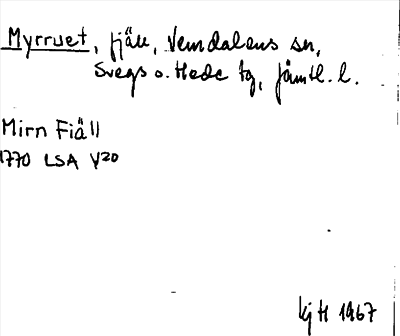 Myrruet, fjäll, Vemdalens sn,
Svegs o. Hede tg, Jämtl. l.
Mirn Fiäll
1770 LSA V20
KjH 1967